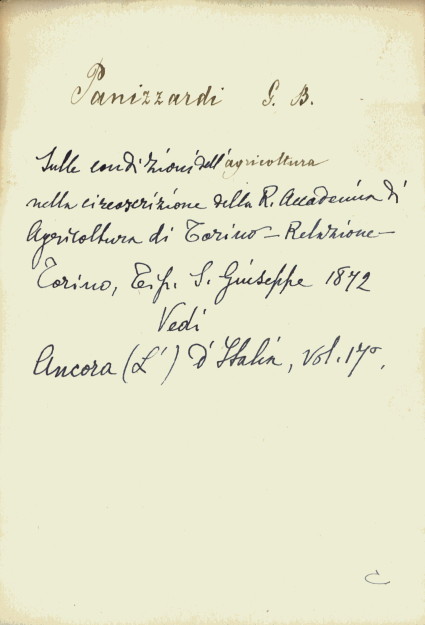 Panizzardi G. B.
Sulle condizioni dell'agricoltura
nella circoscrizione della R. Accademia di
Agricoltura di Torino – Relazione –
Torino, Tip. S. Giuseppe 1872
Vedi
Ancora (L') d'Italia, vol. 17º.
C